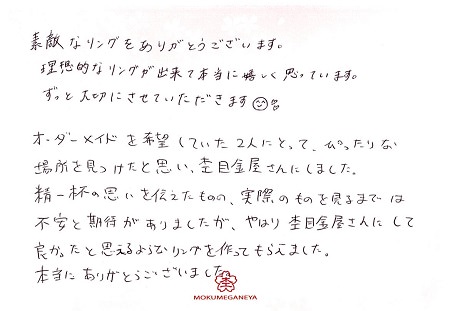 素敵なリングをありがとうございます。
理想的なリングが出来て本当に嬉しく思っています。
ずっと大切にさせていただきます
オーダーメイドを希望していた2人にとって、ぴったりな
場所を見つけたと思い、杢目金屋さんにしました。
精一杯の思いを伝えたものの、実際のものを見るまでは
不安と期待がありましたが、やはり杢目金屋さんにして
良かったと思えるようなリングを作ってもらえました。
本当にありがとうございました
杢
MOKUMEGANEYA